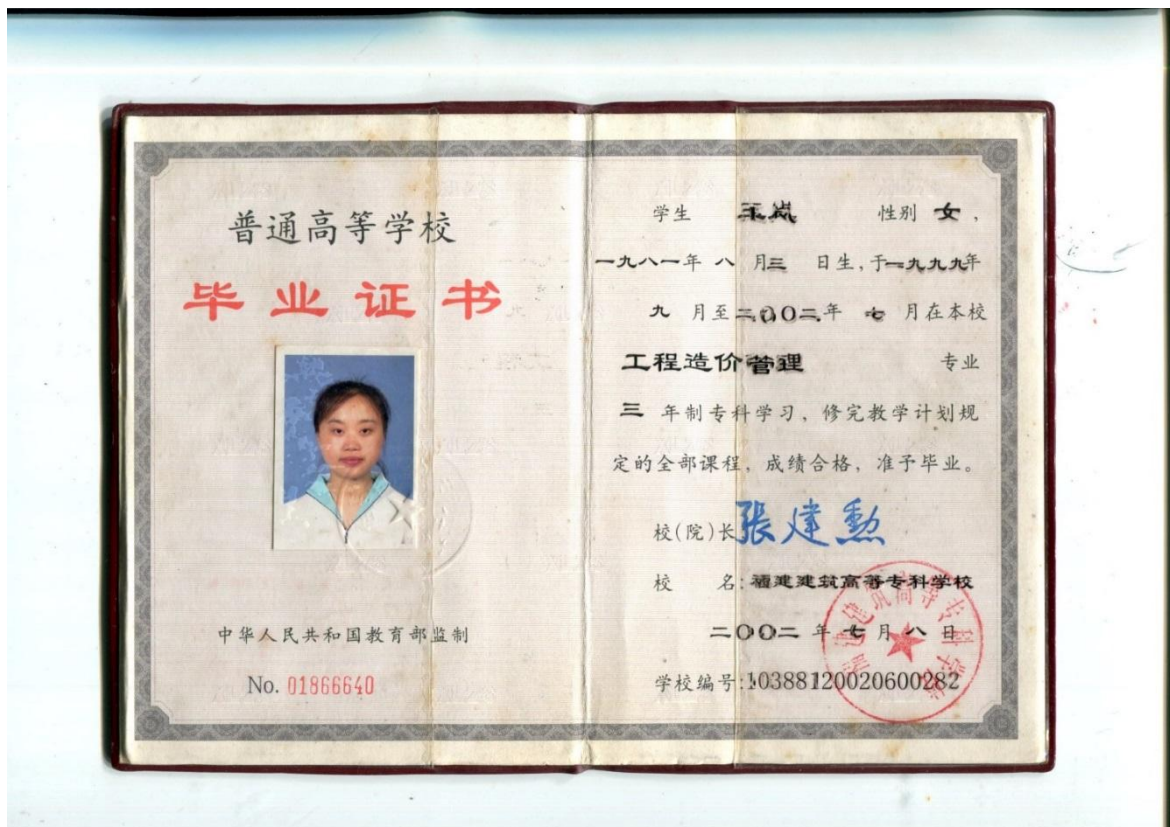 普通高等学校
毕业证书
中华人民共和国教育部监制
No. 01866640
学生 王岚 性别 女，
一九八一年 八 月三 日生，于一九九九年
九 月至二〇〇二年 七 月在本校
工程造价管理 专业
三 年制专科学习，修完教学计划规
定的全部课程，成绩合格，准予毕业。
校(院)长 張建勳
校 名：福建建筑高等专科学校
二〇〇二 年 七 月 八 日
学校编号:10388120020600282
福建建筑高等专科学校